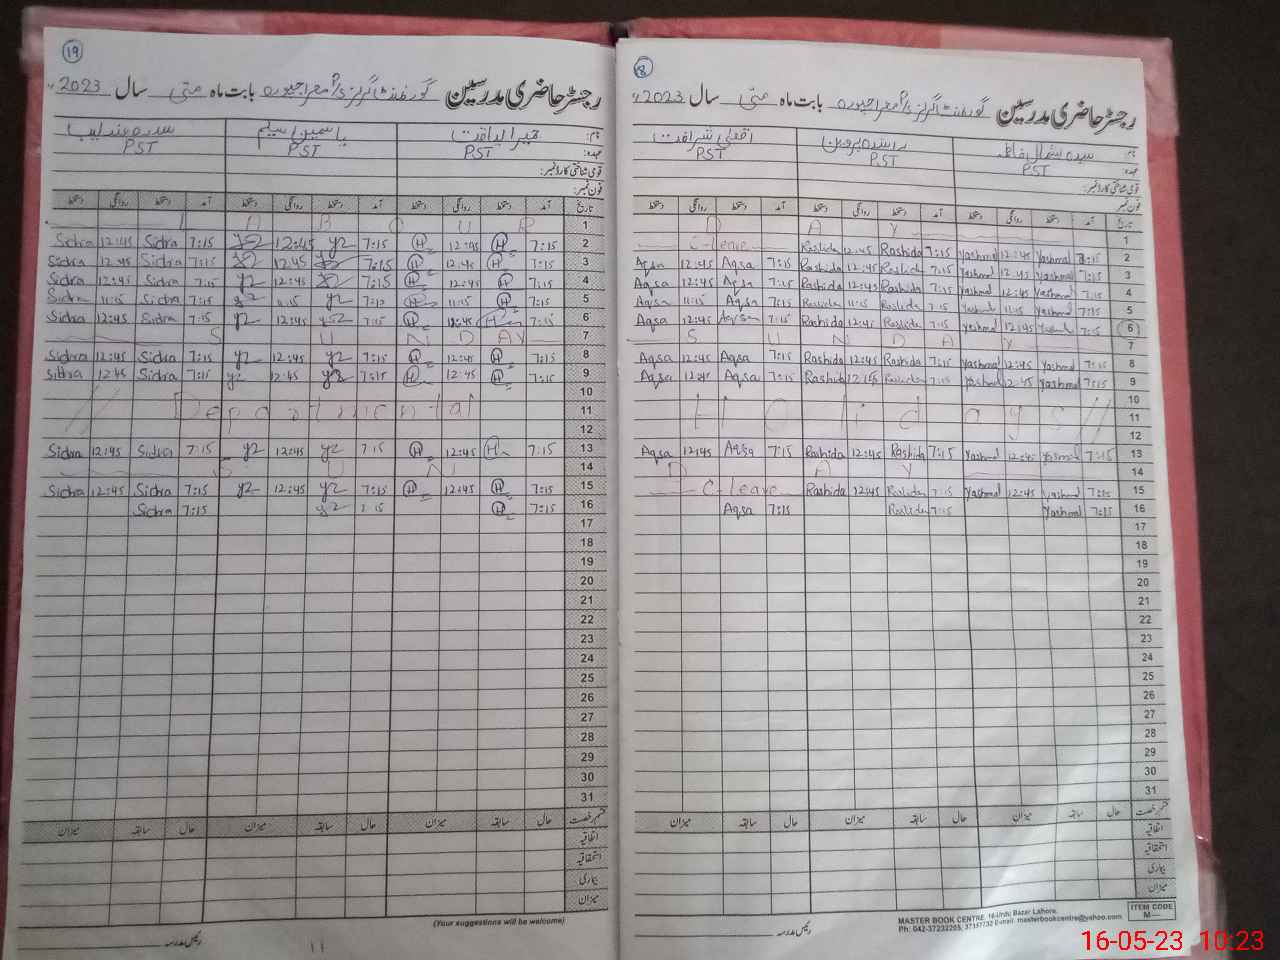 19
رجسٹر حاضری مدرسین گورنمنٹ گرلز بابت ماہ مئی سال 2023ء
نام:
یاسمین سدرہ عندلیب
عہدہ: PST PST PST
قومی شناختی کارڈ نمبر:
فون نمبر:
دستخط روانگی دستخط آمد دستخط روانگی دستخط آمد دستخط روانگی دستخط آمد تاریخ
L A B O U R 1
Sidra 12:45 Sidra 7:15 12:45 y2 7:15 H 12:45 H 7:15 2
Sidra 12:45 Sidra 7:15 12:45 7:15 H 12:45 H 7:15 3
Sidra 12:45 Sidra 7:15 y2 12:45 7:15 H 12:45 H 7:15 4
Sidra 11:15 Sidra 7:15 y2 11:15 y2 7:15 H 11:15 H 7:15 5
Sidra 12:45 Sidra 7:15 y2 12:45 y2 7:15 H 12:45 H 7:15 6
S U N D A Y 7
Sidra 12:45 Sidra 7:15 y2 12:45 y2 7:15 H 12:45 H 7:15 8
Sidra 12:45 Sidra 7:15 y2 12:45 y2 7:15 H 12:45 H 7:15 9
10
Departmental 11
12
Sidra 12:45 Sidra 7:15 y2 12:45 y2 7:15 H 12:45 H 7:15 13
S U N 14
Sidra 12:45 Sidra 7:15 y2 12:45 y2 7:15 H 12:45 H 7:15 15
Sidra 7:15 y2 7:15 H 7:15 16
17
18
19
20
21
22
23
24
25
26
27
28
29
30
31
میزان سابقہ حال میزان سابقہ حال میزان سابقہ حال قسم رخصت
اتفاقیہ
استحقاقیہ
بیماری
میزان
(Your suggestions will be welcome)
رئیس مدرسہ
11
8
رجسٹر حاضری مدرسین گورنمنٹ گرلز بابت ماہ مئی سال 2023ء
نام
سیدہ شمائل فاطمہ راشدہ پروین اقصیٰ شرافت
عہدہ: PST PST PST
قومی شناختی کارڈ نمبر:
فون نمبر
دستخط روانگی دستخط آمد دستخط روانگی دستخط آمد دستخط روانگی دستخط آمد تاریخ
D A Y 1
C-leave Rashida 12:45 Rashida 7:15 Yashmal 12:45 Yashmal 7:15 2
Aqsa 12:45 Aqsa 7:15 Rashida 12:45 Rashida 7:15 Yashmal 12:45 Yashmal 7:15 3
Aqsa 12:45 Aqsa 7:15 Rashida 12:45 Rashida 7:15 Yashmal 12:45 Yashmal 7:15 4
Aqsa 11:15 Aqsa 7:15 Rashida 11:15 Rashida 7:15 Yashmal 11:15 Yashmal 7:15 5
Aqsa 12:45 Aqsa 7:15 Rashida 12:45 Rashida 7:15 Yashmal 12:45 Yashmal 7:15 6
S U N D A Y 7
Aqsa 12:45 Aqsa 7:15 Rashida 12:45 Rashida 7:15 Yashmal 12:45 Yashmal 7:15 8
Aqsa 12:45 Aqsa 7:15 Rashida 12:45 Rashida 7:15 Yashmal 12:45 Yashmal 7:15 9
10
Holidays 11
12
Aqsa 12:45 Aqsa 7:15 Rashida 12:45 Rashida 7:15 Yashmal 12:45 Yashmal 7:15 13
D A Y 14
C-leave Rashida 12:45 Rashida 7:15 Yashmal 12:45 Yashmal 7:15 15
Aqsa 7:15 Rashida 7:15 Yashmal 7:15 16
17
18
19
20
21
22
23
24
25
26
27
28
29
30
31
میزان سابقہ حال میزان سابقہ حال میزان سابقہ حال قسم رخصت
اتفاقیہ
استحقاقیہ
بیماری
میزان
MASTER BOOK CENTRE, 16-Urdu Bazar Lahore.
Ph: 042-37232205, 37157732 E-mail. masterbookcentre@yahoo.com
ITEM CODE
M—
رئیس مدرسہ
16-05-23 10:23